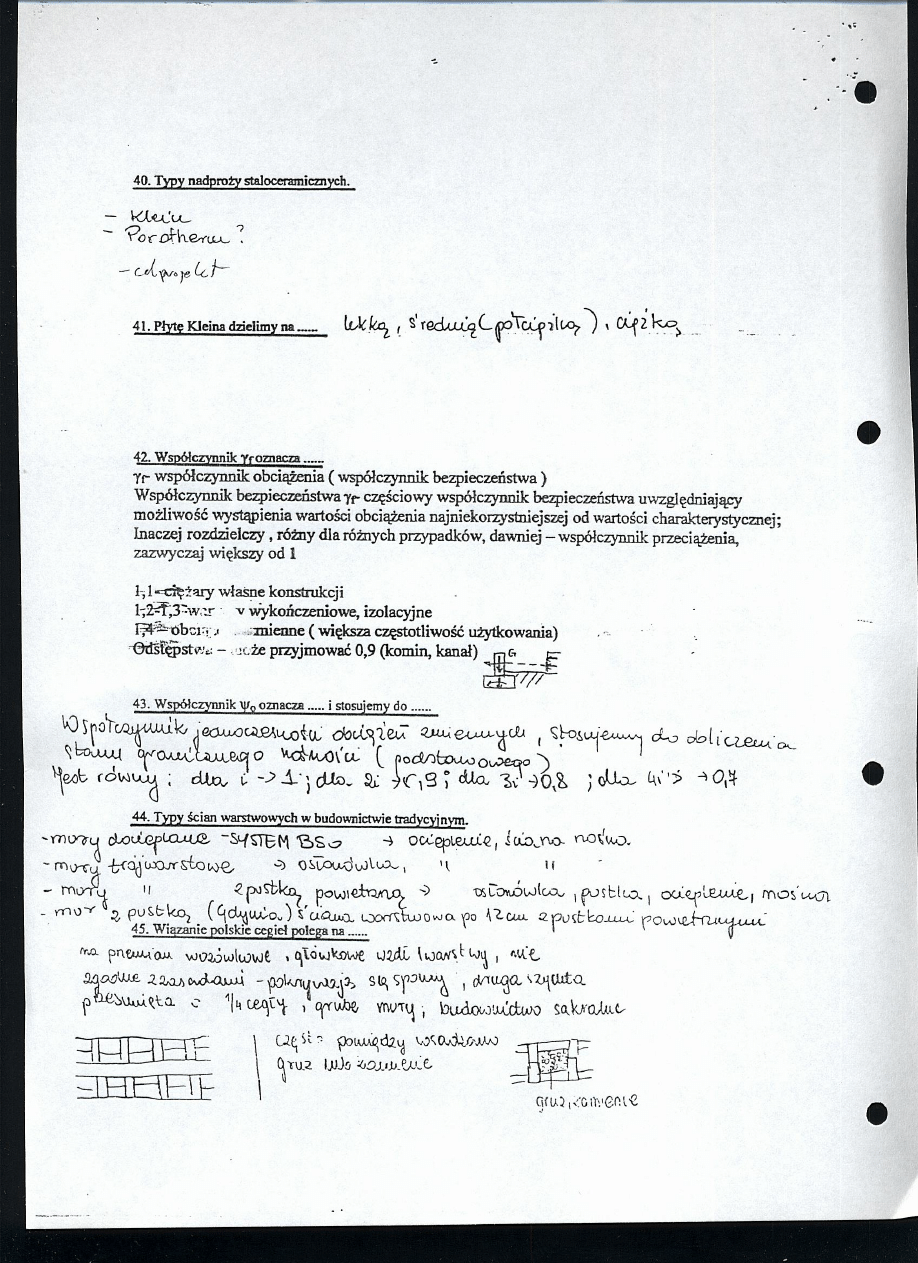 40. Typy nadproży staloceramicznych.
- Klein
- Porotherm ?
- celprojekt
41. Płytę Kleina dzielimy na ...... lekką, średnią (półciężką), ciężką
42. Współczynnik γf oznacza ......
γf- współczynnik obciążenia ( współczynnik bezpieczeństwa )
Współczynnik bezpieczeństwa γf- częściowy współczynnik bezpieczeństwa uwzględniający
możliwość wystąpienia wartości obciążenia najniekorzystniejszej od wartości charakterystycznej;
Inaczej rozdzielczy , różny dla różnych przypadków, dawniej – współczynnik przeciążenia,
zazwyczaj większy od 1
1,1-ciężary własne konstrukcji
1,2-1,3- w wykończeniowe, izolacyjne
1,4- zmienne ( większa częstotliwość użytkowania)
Odstępstwa – może przyjmować 0,9 (komin, kanał) G
43. Współczynnik ψ₀ oznacza ..... i stosujemy do ......
Współczynnik jednoczesności obciążeń zmiennych, stosujemy do obliczenia
stanu granicznego nośności (podstawowego)
Jest równy: dla i -> 1 ; dla 2i -> 0,9 ; dla 3i -> 0,8 ; dla 4i -> 0,7
44. Typy ścian warstwowych w budownictwie tradycyjnym.
- mury docieplane - SYSTEM BSO -> ocieplenie, ściana nośna.
- mury trójwarstowe -> osłonówka, " "
- mury " z pustką powietrzną -> osłonówka, pustka, ocieplenie, nośna
- mur z pustką (Gdynia) ściana warstwowa po 12 cm z pustkami powietrznymi
45. Wiązanie polskie cegieł polega na ......
na przemian wozówkowe, główkowe wzdł 1 warstwy, nie
zgodne z zasadami - pokrywają się spoiny, druga
przesunięta o 1/4 cegły, grube mury; budownictwo sakralne
część pomiędzy wsadzano
gruz lub kamienie
gruz, kamienie